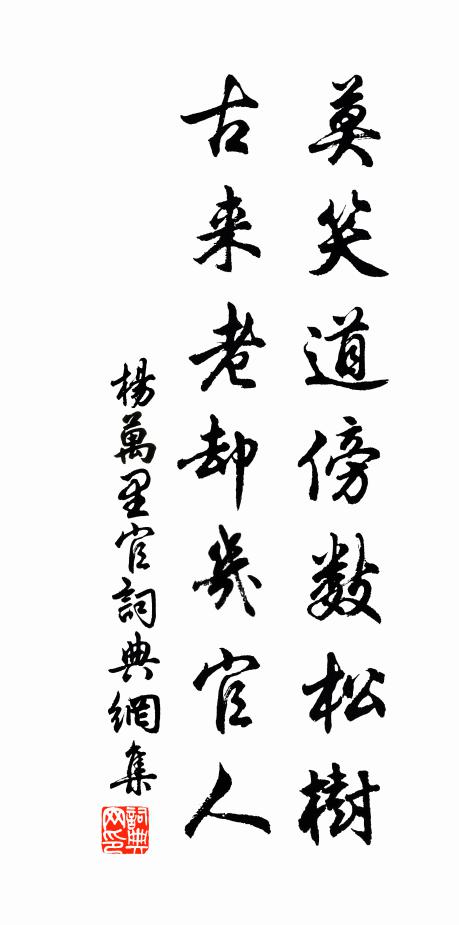 莫笑道傍数松樹
古来老却幾官人
楊萬里官詞典網集
詞典网印